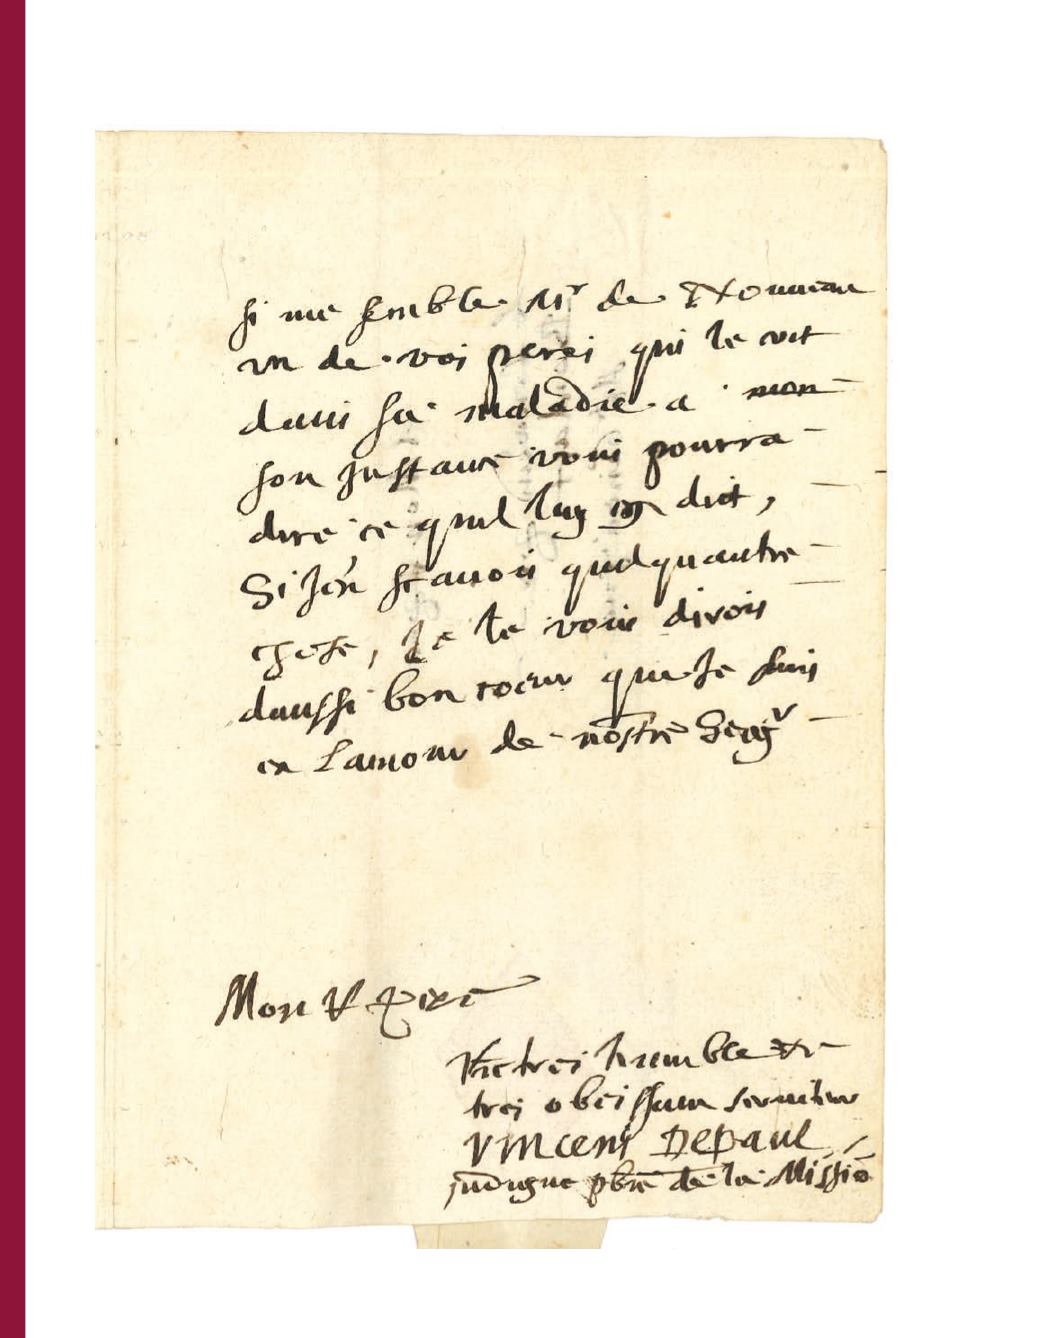 si me semble Mr de
un de vos peres qui le vit
dans sa maladie a mon
son Instance vous pourra
dire ce quil luy en dict,
Si Jen scavois quelquautre
chose, Je le vous dirois
daussi bon coeur que Je suis
en Lamour de nostre Seigr
Mon R pere
Vre tres humble et
tres obeissant serviteur
Vincent Depaul
indigne pbre de la Missio